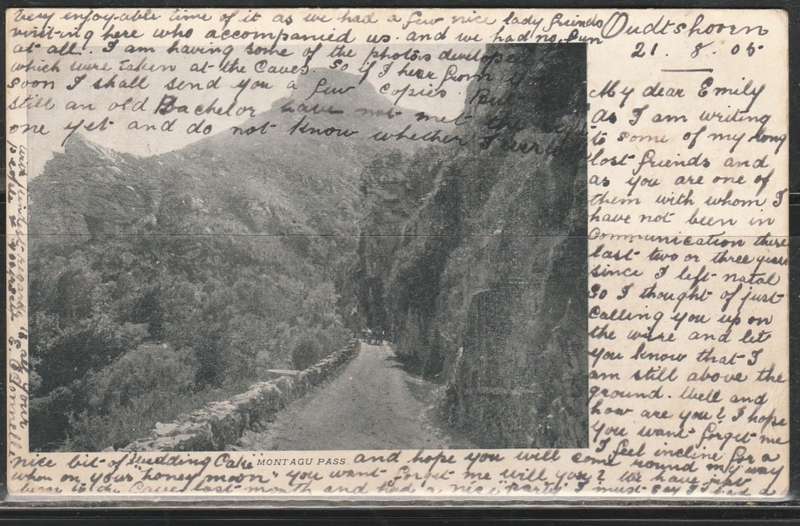 Oudtshoorn
21. 8. 05
My dear Emily
as I am writing
to some of my long
lost friends and
as you are one of
them with whom I
have not been in
Communication these
last two or three years
since I left natal
So I thought of just
Calling you up on
the wire and let
you know that I
am still above the
ground. Well and
how are you? I hope
you want forget me
I feel incline for a
nice bit of Wedding Cake and hope you will come round my way
MONTAGU PASS.
when on your "honey moon" you want forget me will you? We have
been to the Caves last month and had a nice party I must say I had a
very enjoy-able time of it as we had a few nice lady friends
visiting here who accompanied us. and we had no fun
at all. I am having some of the photos developed
which were taken at the Caves so if I hear from you
soon I shall send you a few Copies.
still an old Bachelor have not met the
one yet and do not know whether I ever